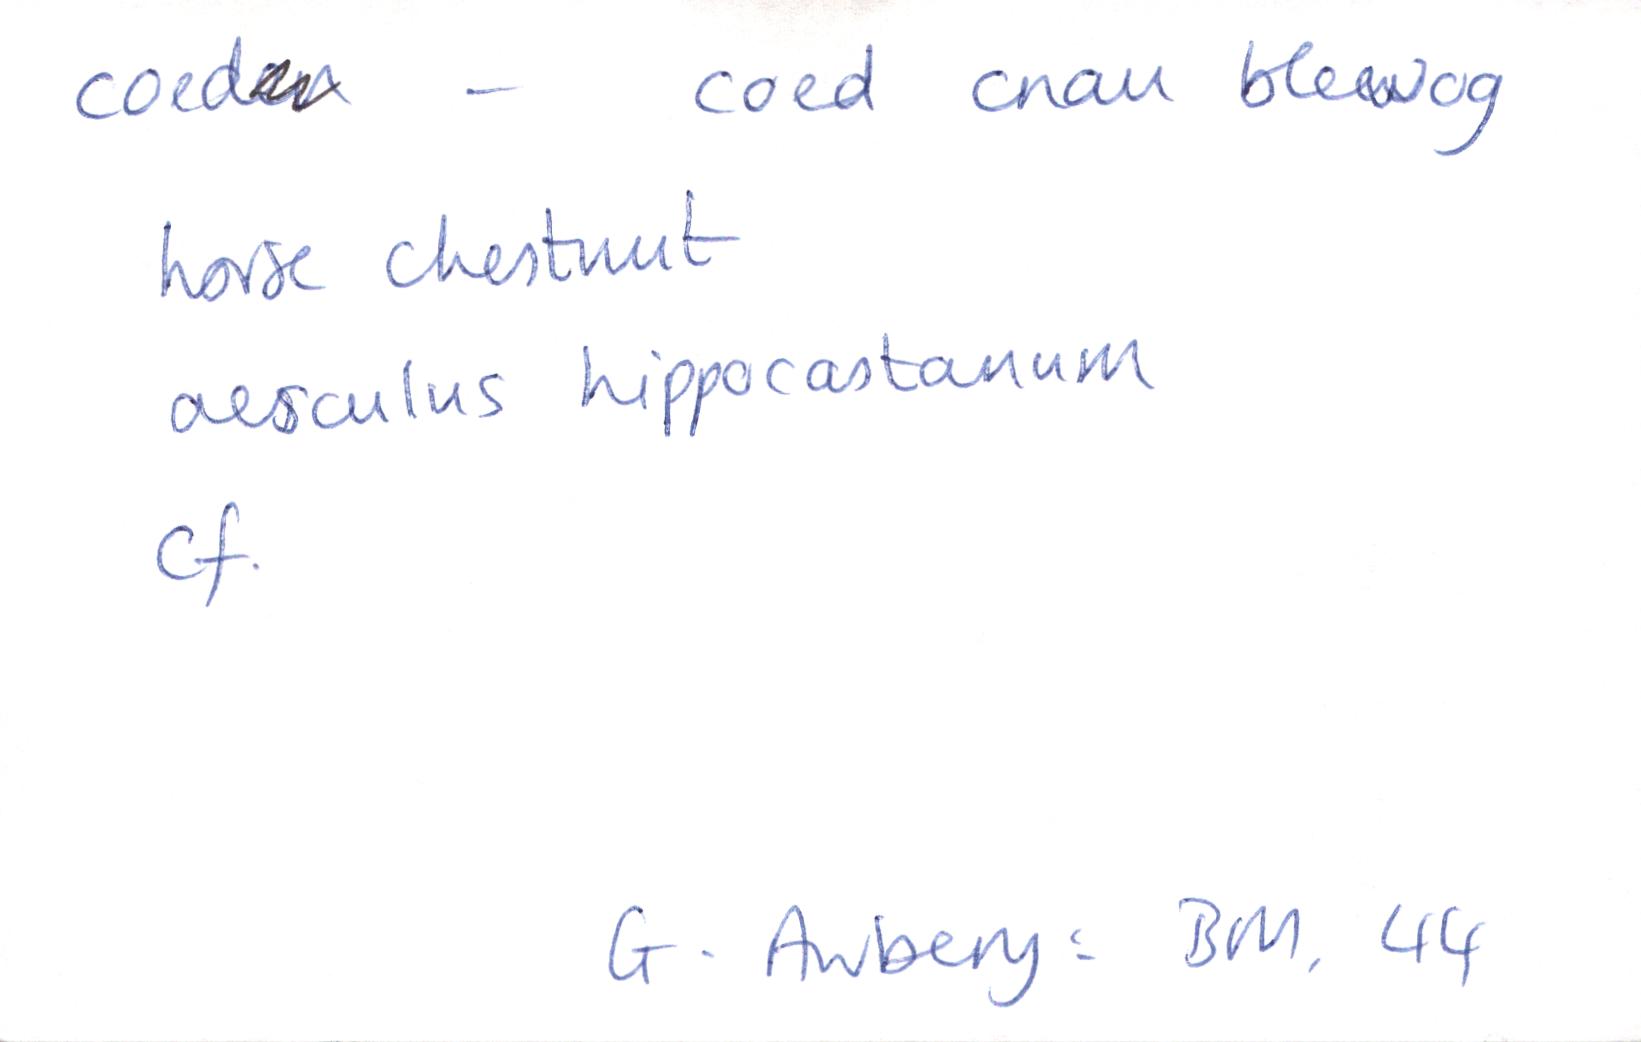 coed - coed cnau blewog
horse chestnut
aesculus hippocastanum
cf.
G. Awbery: BM, 44